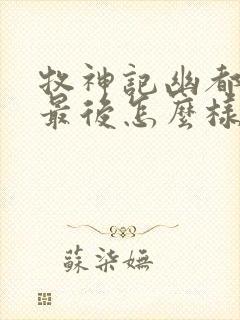 牧神記幽都
最後怎麼樣
蘇染嫵